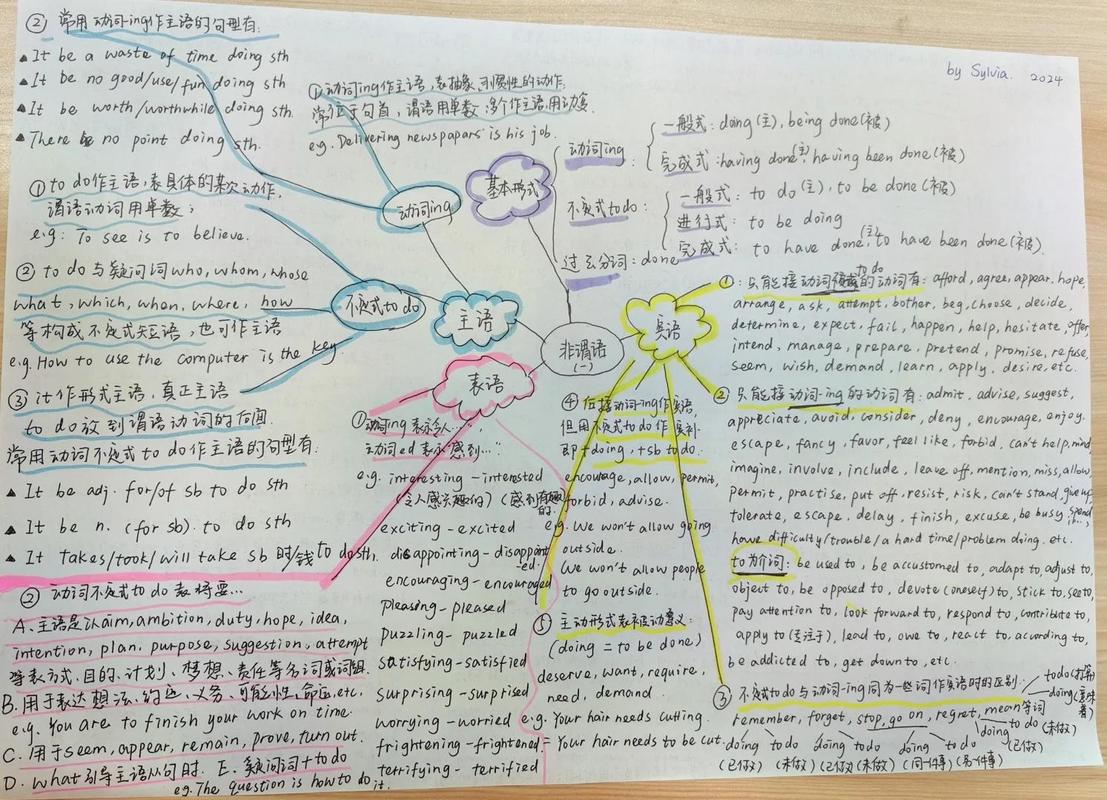 by Sylvia. 2024
② 常用动词-ing作主语的句型有:
▲It be a waste of time doing sth
▲It be no good/use/fun doing sth
▲It be worth/worthwhile doing sth.
▲There be no point doing sth.
①动词ing作主语,表抽象、习惯性的动作.
常位于句首,谓语用单数;多个作主语,用
eg. Delivering newspapars is his job.
动词ing
基本形式
动词ing:
一般式: doing(主), being done(被)
完成式: having done(主), having been done(被)
不定式to do:
一般式: to do(主), to be done(被)
进行式: to be doing
完成式: to have done(主), to have been done(被)
过去分词: done
① to do作主语,表具体的某次动作,
谓语动词用单数;
e.g: To see is to believe.
② to do与疑问词who, whom, whose
what, which, when, where, how
等构成不定式短语,也可作主语
e.g. How to use the computer is the key
③ it作形式主语,真正主语
to do放到谓语动词的后面
常用动词不定式to do作主语的句型有:
▲ It be adj. for/of sb to do sth
▲ It be n. (for sb). to do sth
▲ It takes/took/will take sb 时/钱 to do sth.
不定式to do
主语
非谓语
(一)
宾语
表语
①动词ing表示令人…
动词ed表示感到…"
e.g. interesting-interested
(令人感兴趣的) (感到有趣的.
exciting-excited
disappointing-disappointed
encouraging-encouraged
pleasing-pleased
puzzling-puzzled
satisfying-satisfied
surprising-surprised
worrying-worried
frightening-frightened
terrifying-terrified
② 动词不定式to do 表将要…
A、主语是以aim, ambition, duty, hope, idea,
intention, plan, purpose, suggestion, attempt
等表方式、目的、计划、梦想、责任等名词或词组.
B. 用于表达想法、约定、义务、可能性、命运, etc.
e.g. You are to finish your work on time.
C. 用于seem, appear, remain, prove, turn out.
D. what引导主语从句时. E. 疑问词+to do
eg. The question is how to do it.
①: 只能接动词to do的动词有: afford, agree, appear, hope,
arrange, ask, attempt, bother, beg, choose, decide,
determine, expect, fail, happen, help, hesitate, offer
intend, manage, prepare, pretend, promise, refuse,
seem, wish, demand, learn, apply, desire, etc.
② 只能接动词-ing的动词有: admit, advise, suggest,
appreciate, avoid, consider, deny, encourage, enjoy.
escape, fancy, favor, feel like, forbid, can't help, mind
imagine, involve, include, leave off, mention, miss, allow
permit, practise, put off, resist, risk, can't stand, give up
tolerate, escape, delay, finish, excuse, be busy, spend
have difficulty/trouble/a hard time/problem doing. etc.
to为介词: be used to, be accustomed to, adapt to, adjust to,
object to, be opposed to, devote (oneself) to, stick to, see to,
pay attention to, look forward to, respond to, contribute to,
apply to(专注于), lead to, owe to, react to, acording to,
be addicted to, get down to, etc.
③ 不定式to do与动词-ing同为一些词作宾语时的区别:
remember, forget, stop, go on, regret, mean等词
to do(打算)
doing(意味着)
doing to do doing to do doing to do doing to do
(已做) (未做) (已做) (未做) (同一件事) (另一件事) (已做) (未做)
④ 后接动词-ing作宾语,
但用不定式to do作宾补
即+doing, +sb to do.
encouage, allow, permit,
forbid, advise.
e.g. We won't allow going
outside.
We won't allow people
to go outside.
⑤ 主动形式表被动意义:
(doing = to be done)
deserve, want, require,
need, demand.
e.g. Your hair needs cutting.
= Your hair needs to be cut.